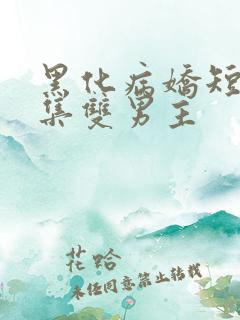 黑化病嬌短
集雙男主
花蛤
未经同意禁止转载